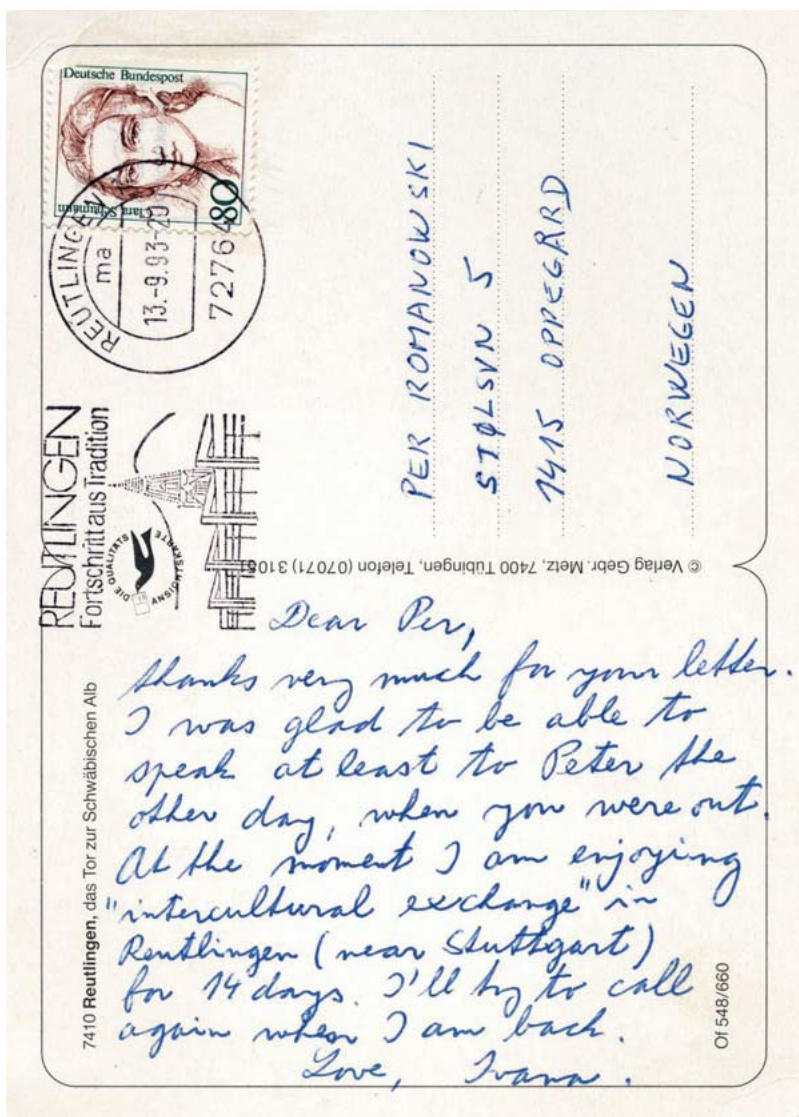 Deutsche Bundespost
80
Clara Schumann
REUTLINGEN
ma
13.-9.93-20
72764
REUTLINGEN
Fortschritt aus Tradition
DIE QUALITÄTS
ANSICHTSKARTE
PER ROMANOWSKI
STØLSVN 5
1415 OPPEGÅRD
NORWEGEN
© Verlag Gebr. Metz, 7400 Tübingen, Telefon (07071) 31051
7410 Reutlingen, das Tor zur Schwäbischen Alb
Dear Per,
thanks very much for your letter.
I was glad to be able to
speak at least to Peter the
other day, when you were out.
At the moment I am enjoying
"intercultural exchange" in
Reutlingen (near Stuttgart)
for 14 days. I'll try to call
again when I am back.
Love, Ivana.
Of 548/660